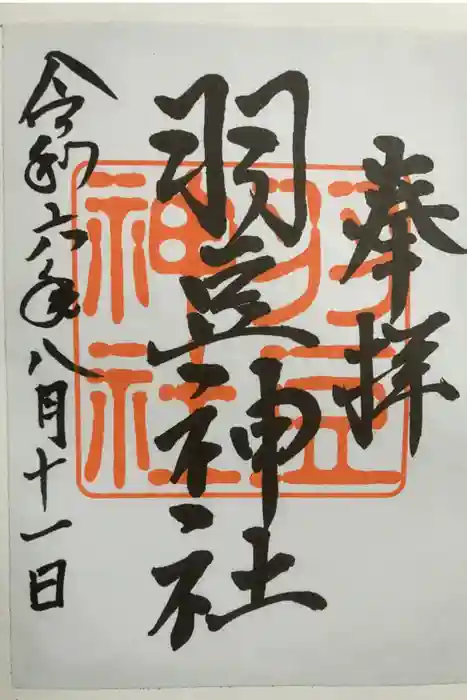 奉拝
羽豆神社
令和六年八月十一日
羽豆
神社